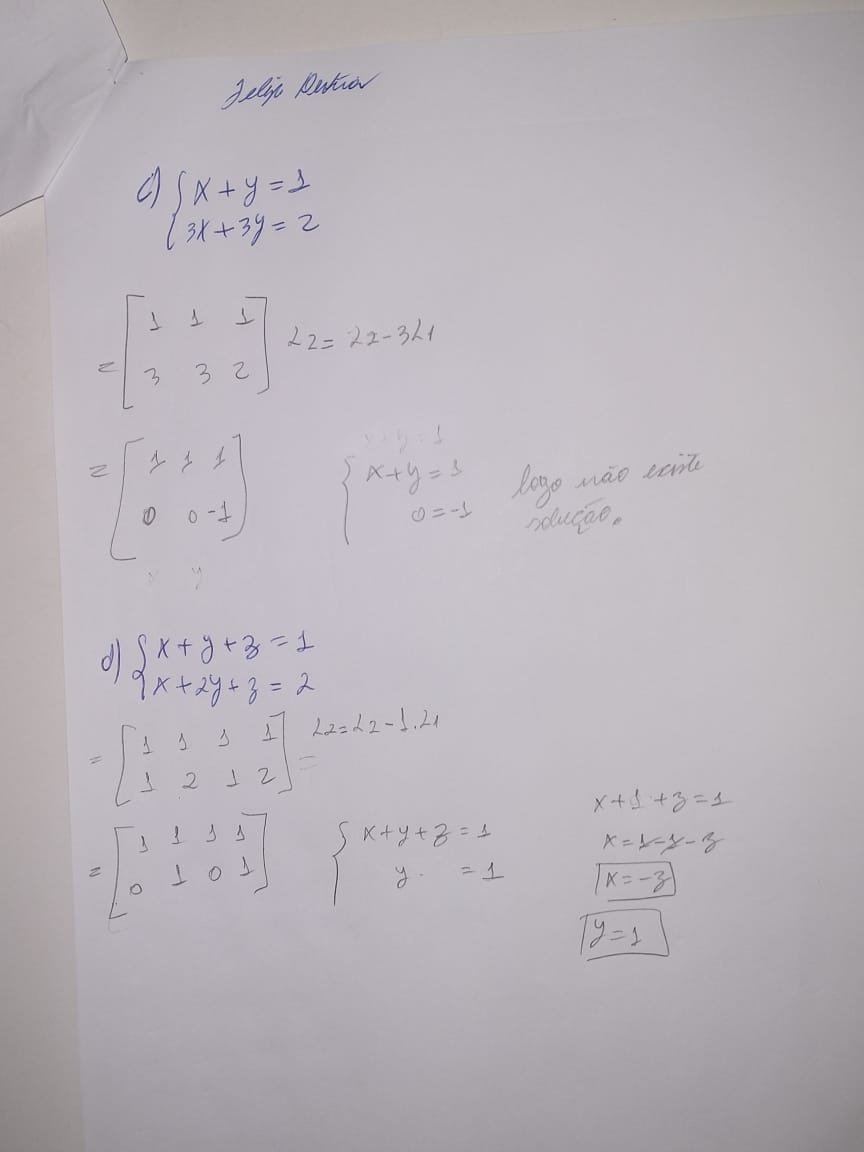 c) { x + y = 1
3x + 3y = 2
= [ 1 1 1
3 3 2 ] L2 = L2 - 3L1
= [ 1 1 1
0 0 -1 ]
{ x + y = 1
0 = -1
logo não existe
solução.
x y
d) { x + y + z = 1
x + 2y + z = 2
= [ 1 1 1 1
1 2 1 2 ] = L2 = L2 - 1.L1
= [ 1 1 1 1
0 1 0 1 ]
{ x + y + z = 1
y = 1
x + 1 + z = 1
x = 1 - 1 - z
x = -z
y = 1